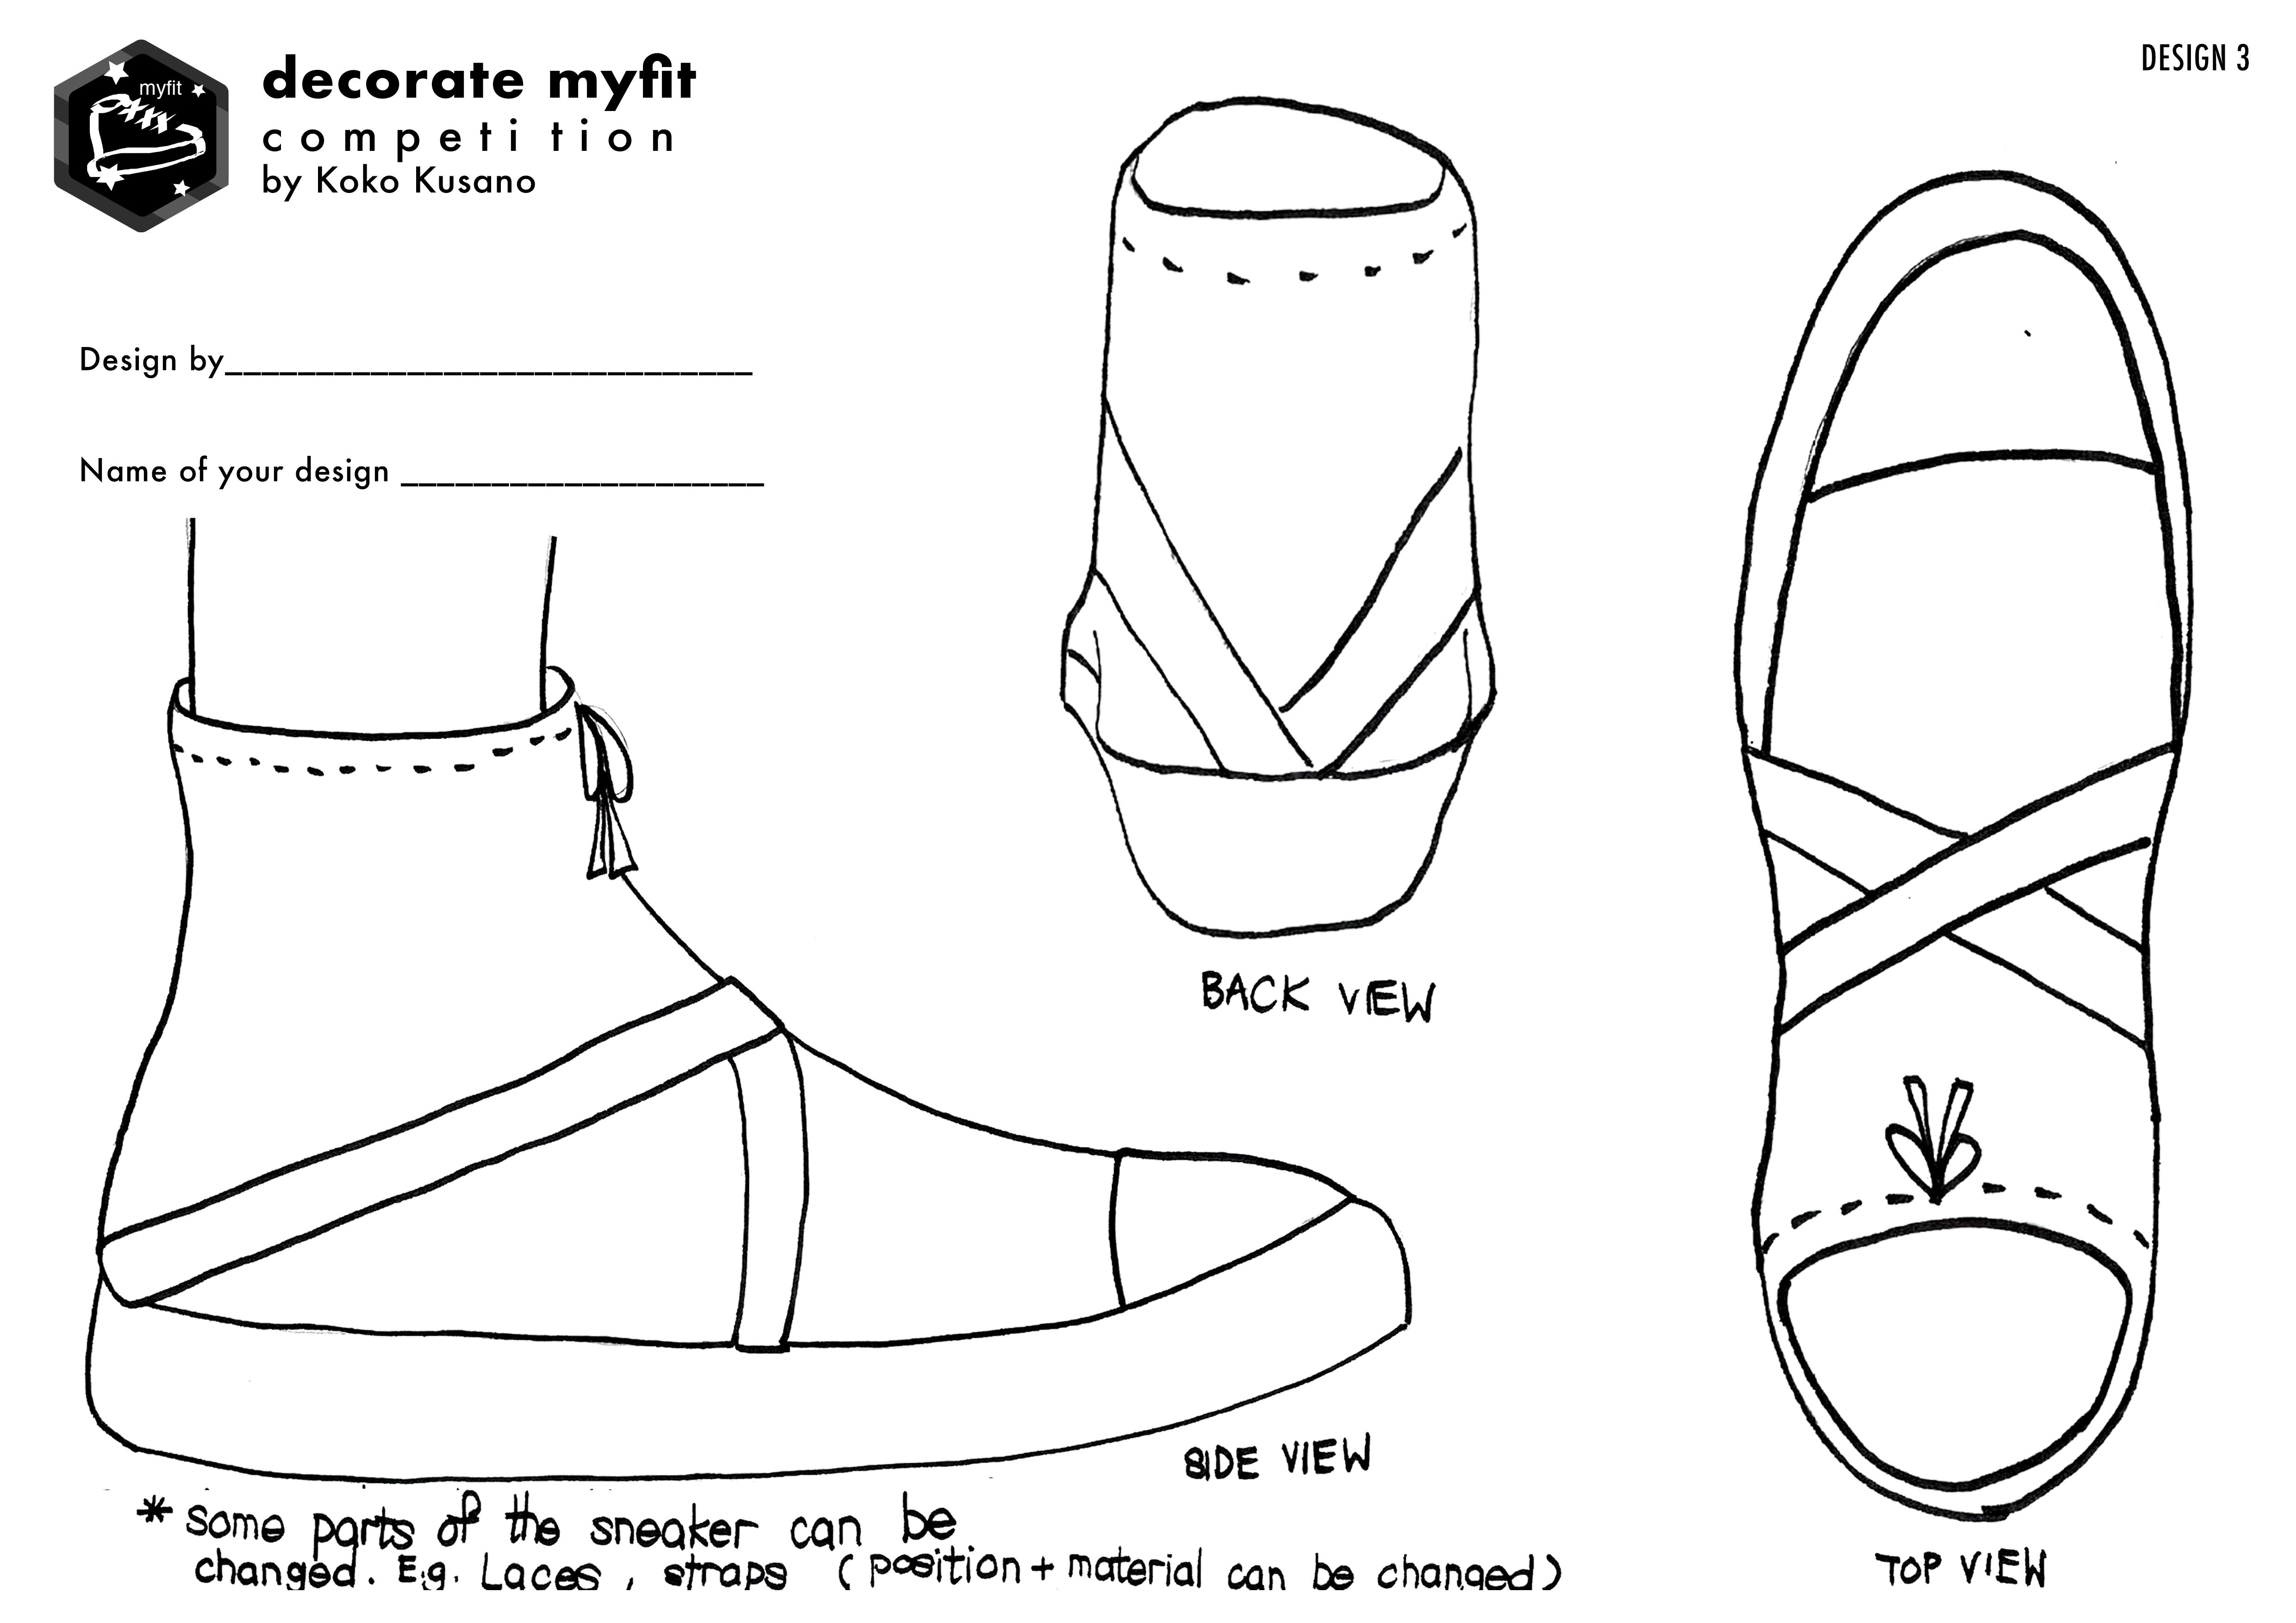 myfit
decorate myfit
competition
by Koko Kusano
DESIGN 3
Design by______________________________
Name of your design _____________________
BACK VIEW
SIDE VIEW
* some parts of the sneaker can be
changed. E.g. Laces, straps (position + material can be changed)
TOP VIEW